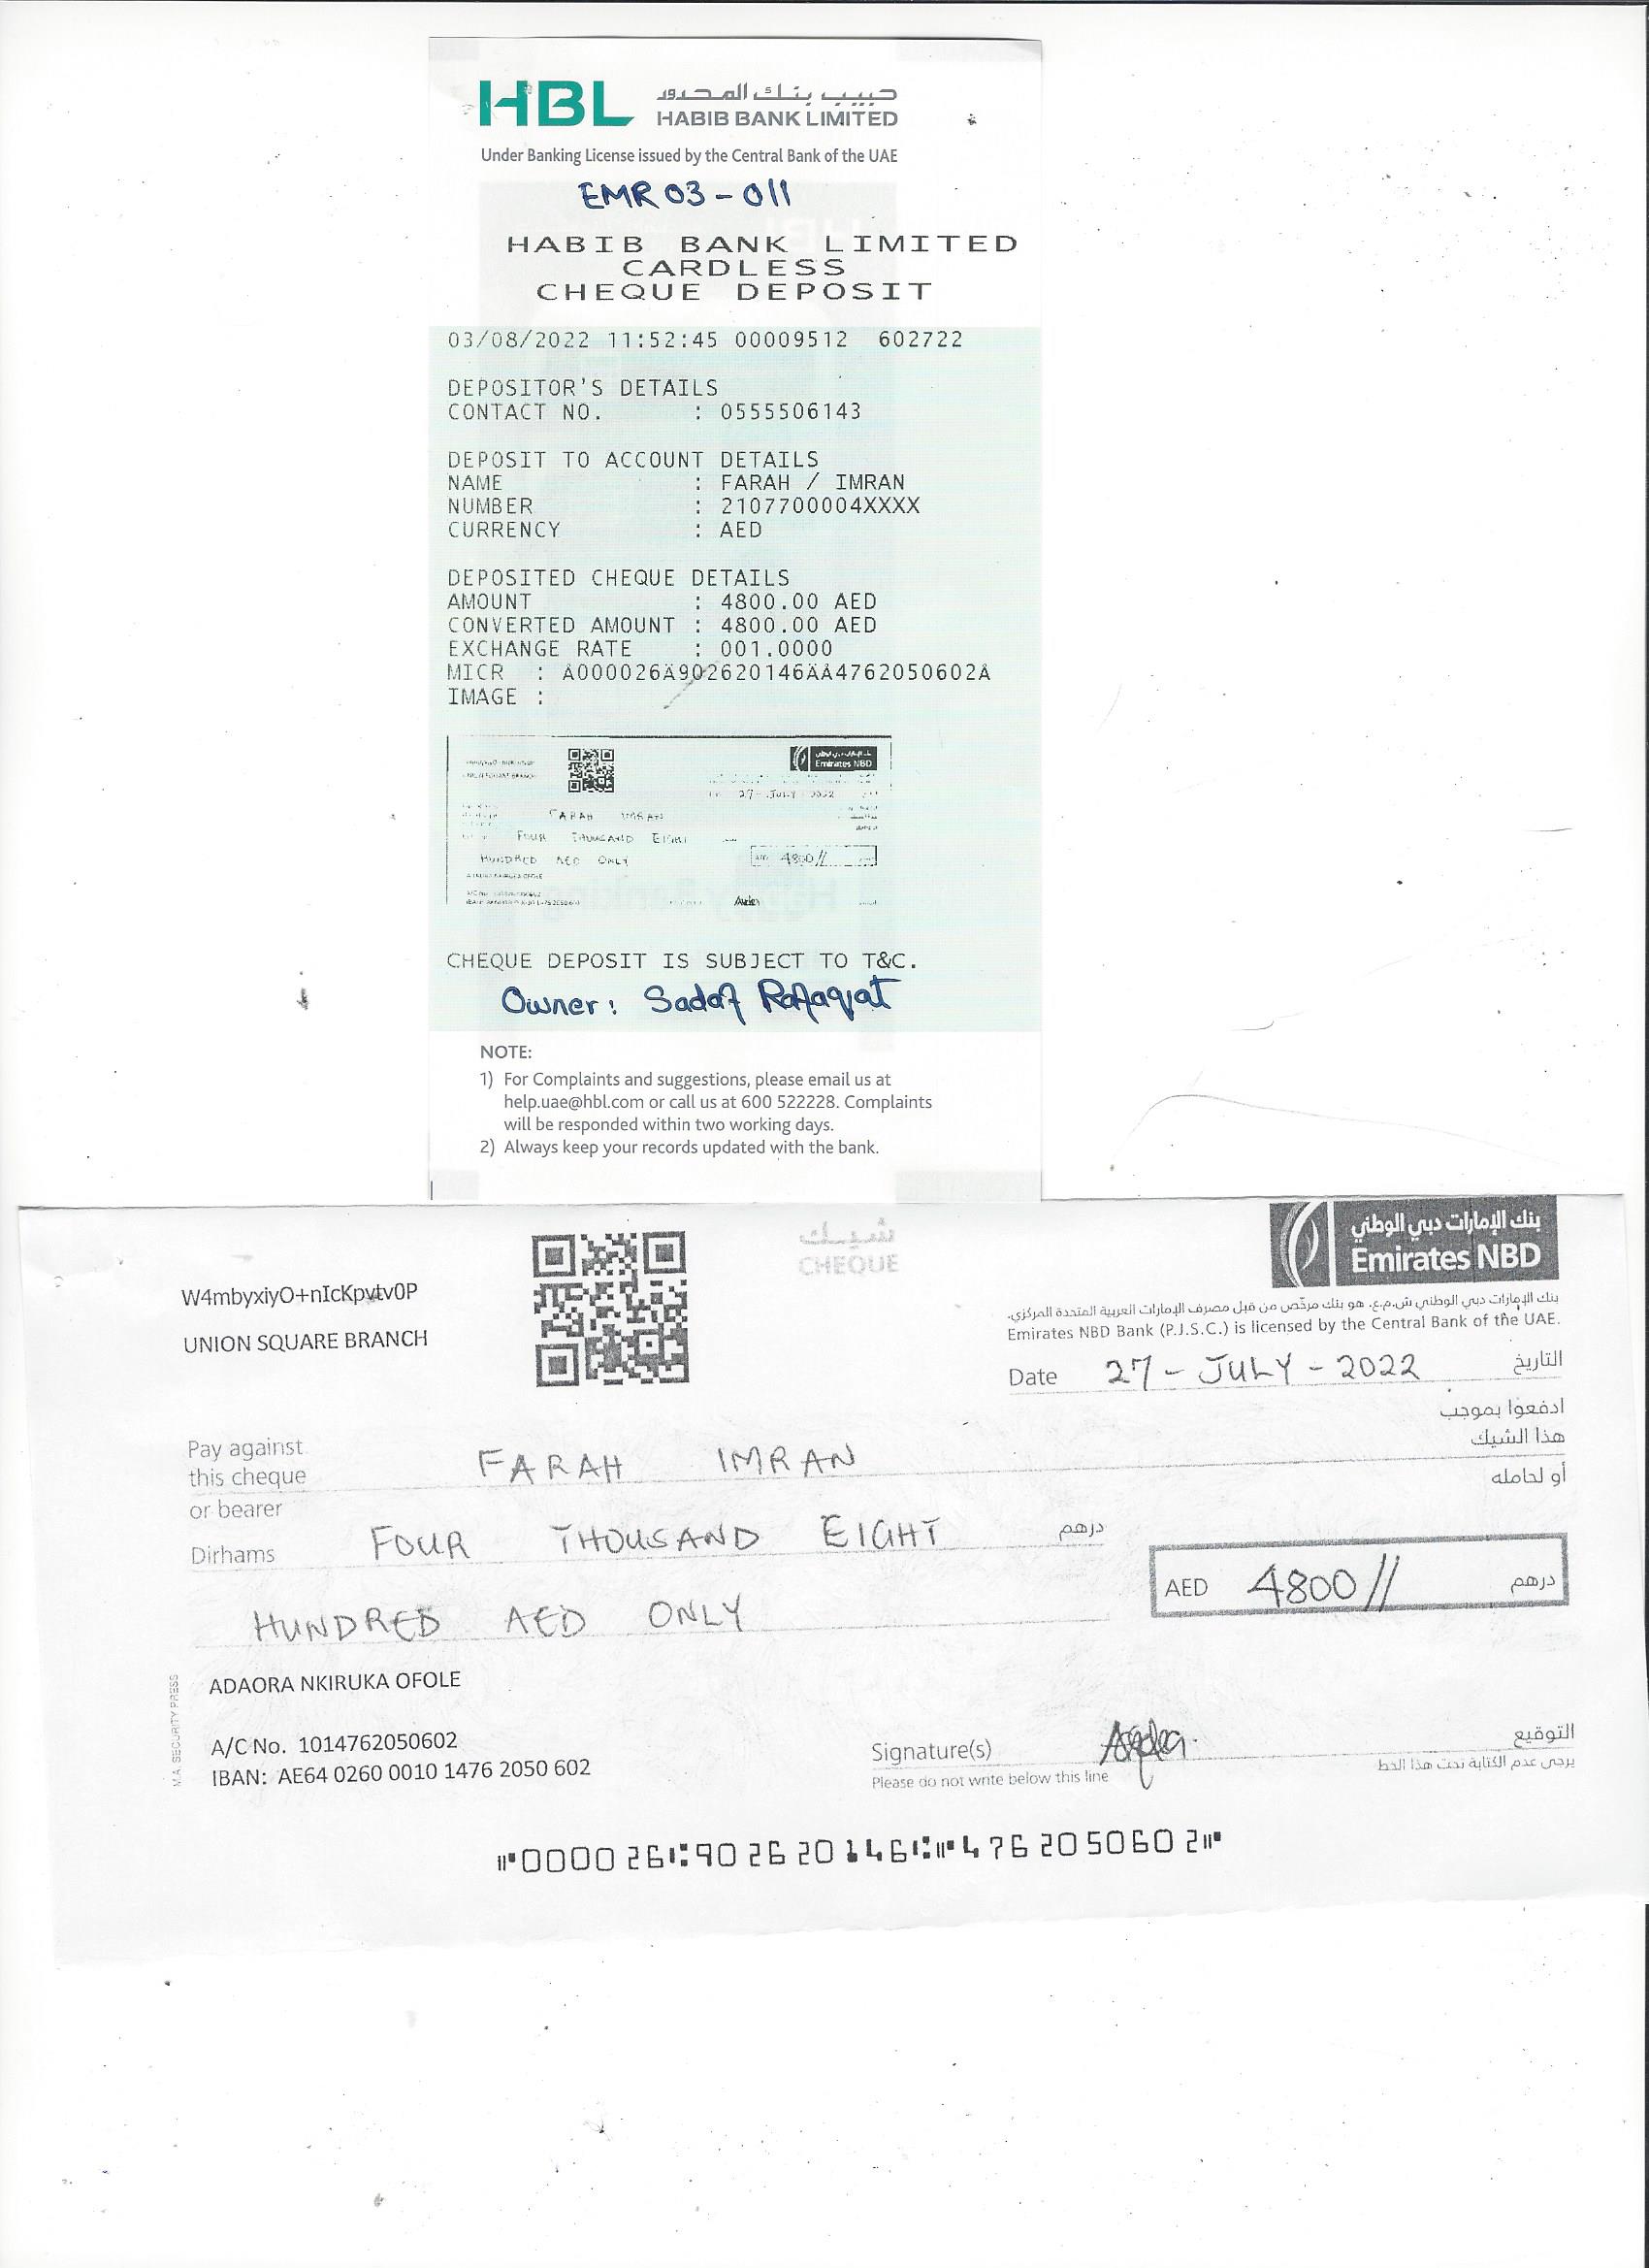 HBL حبيب بنك المحدود
HABIB BANK LIMITED
Under Banking License issued by the Central Bank of the UAE
EMR 03 - 011
HABIB BANK LIMITED
CARDLESS
CHEQUE DEPOSIT
03/08/2022 11:52:45 00009512 602722
DEPOSITOR'S DETAILS
CONTACT NO. : 0555506143
DEPOSIT TO ACCOUNT DETAILS
NAME : FARAH / IMRAN
NUMBER : 2107700004XXXX
CURRENCY : AED
DEPOSITED CHEQUE DETAILS
AMOUNT : 4800.00 AED
CONVERTED AMOUNT : 4800.00 AED
EXCHANGE RATE : 001.0000
MICR : A000026A902620146AA4762050602A
IMAGE :
Emirates NBD
27 - JULY - 2022
FARAH IMRAN
FOUR THOUSAND EIGHT
HUNDRED AED ONLY
AED 4800//
CHEQUE DEPOSIT IS SUBJECT TO T&C.
Owner: Sadaf Rafaqat
NOTE:
1) For Complaints and suggestions, please email us at
help.uae@hbl.com or call us at 600 522228. Complaints
will be responded within two working days.
2) Always keep your records updated with the bank.
شيك
CHEQUE
بنك الإمارات دبي الوطني
Emirates NBD
W4mbyxiyO+nIcKpvtv0P
UNION SQUARE BRANCH
بنك الإمارات دبي الوطني ش.م.ع. هو بنك مرخّص من قبل مصرف الإمارات العربية المتحدة المركزي.
Emirates NBD Bank (P.J.S.C.) is licensed by the Central Bank of the UAE.
Date 27 - JULY - 2022 التاريخ
Pay against ادفعوا بموجب
this cheque FARAH IMRAN هذا الشيك
or bearer أو لحامله
Dirhams FOUR THOUSAND EIGHT درهم
HUNDRED AED ONLY AED 4800// درهم
ADAORA NKIRUKA OFOLE
M.A. SECURITY PRESS
A/C No. 1014762050602
IBAN: AE64 0260 0010 1476 2050 602
Signature(s) التوقيع
Please do not write below this line يرجى عدم الكتابة تحت هذا الخط
⑈000026⑆902620146⑆⑈4762050602⑈